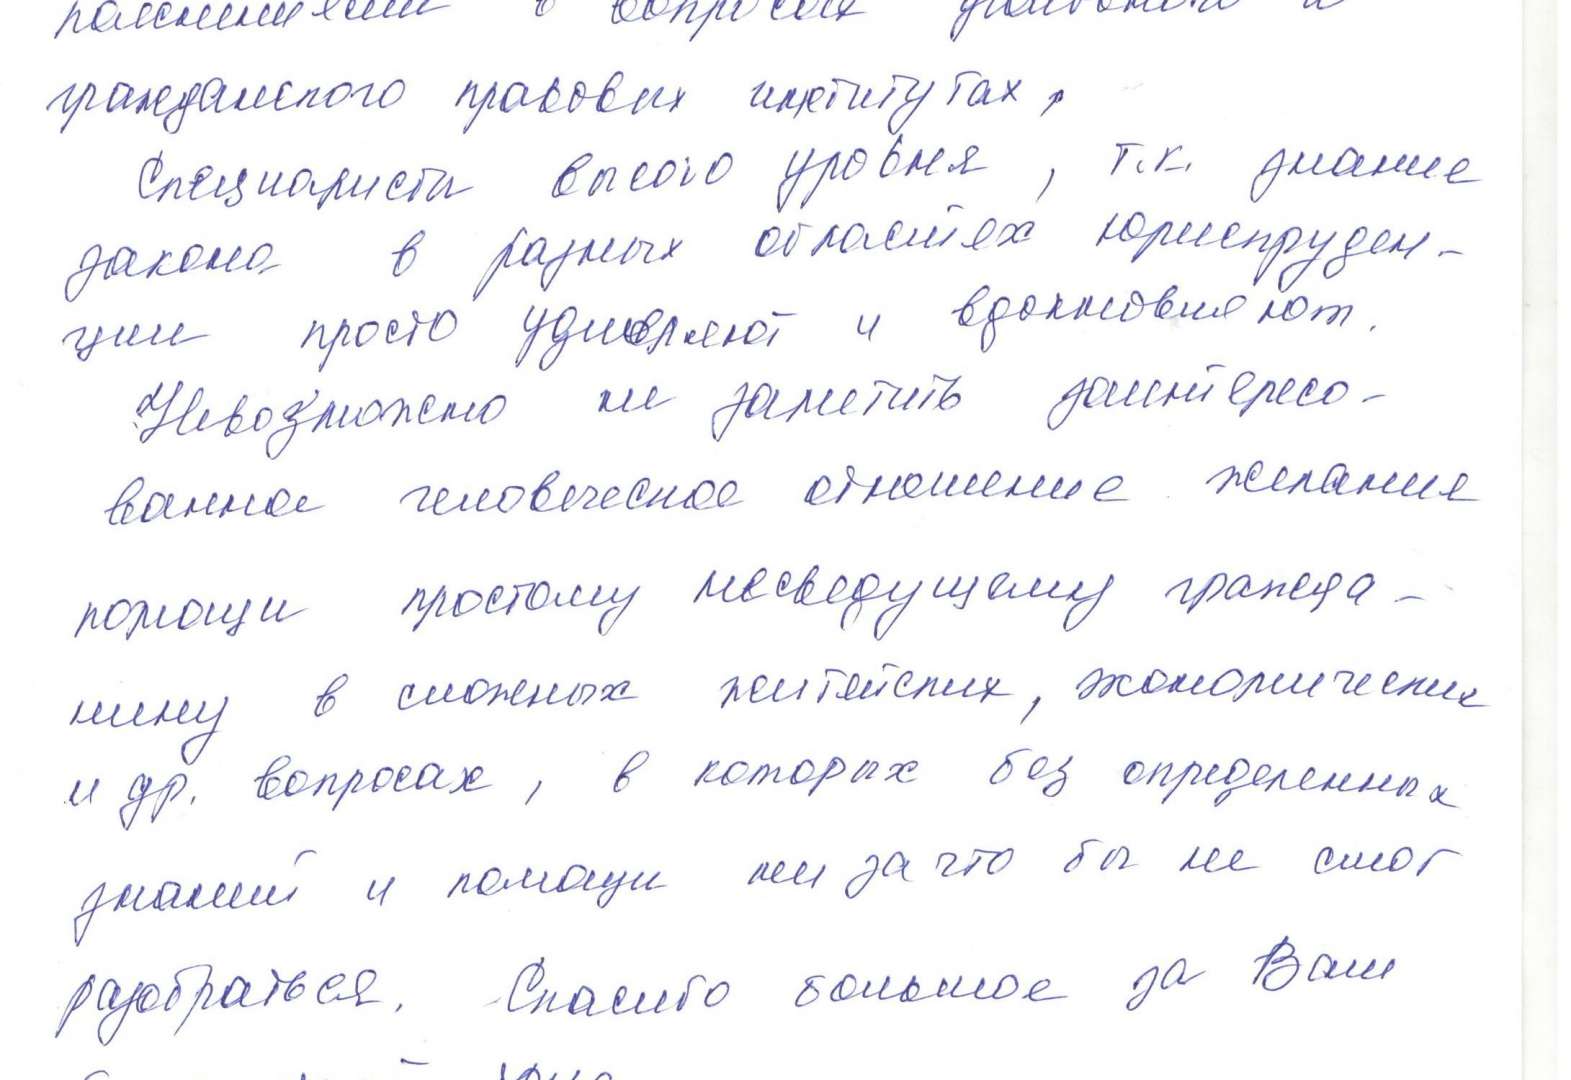 в вопросах
гражданского правовых институтах,
Специалисты высого уровня, т.к. знание
закона в разных областях юриспруден-
ции просто удивляют и вдохновляют.
Невозможно не заметить заинтересо-
ванное человеческое отношение желание
помощи простому несведущему гражда-
нину в сложных житейских, экономических
и др. вопросах, в которых без определенных
знаний и помощи ни за что бы не смог
разобраться. Спасибо большое за Ваш